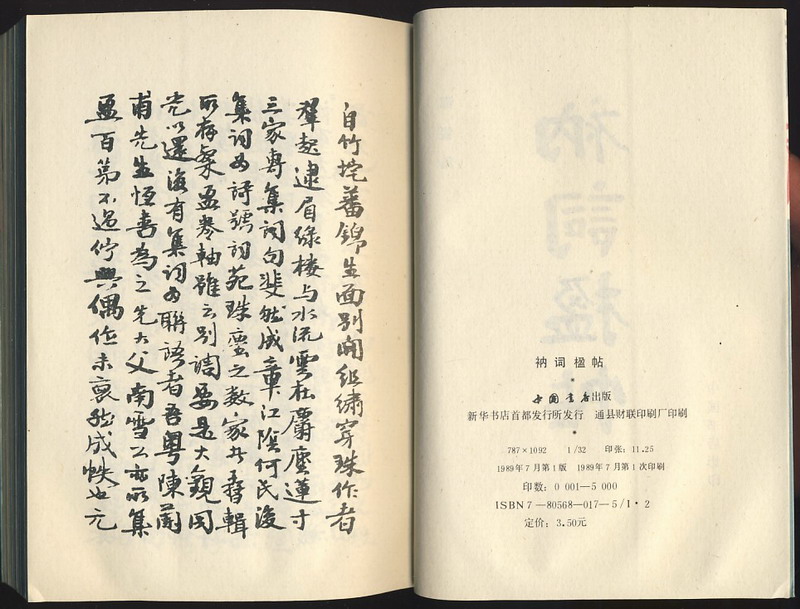 自竹垞蕃錦生面別開組繡穿珠作者
輩起逮眉綠樓与水流雲在麝塵蓮寸
三家專集詞句斐然成章江陰何氏復
集詞為詩號詞苑珠塵之數家輯
所存粲盈卷軸雖云別調要是大觀同
光以還復有集詞為聯語者吾粵陳蘭
甫先生恆喜為之先大父南雪公亦所集
盈百第不過佇興偶作未裒然成帙也元
衲词楹帖
中国書店出版
新华书店首都发行所发行 通县财联印刷厂印刷
787×1092 1/32 印张：11.25
1989年7月第1版 1989年7月第1次印刷
印数：0 001—5 000
ISBN 7—80568—017—5/I·2
定价：3.50元